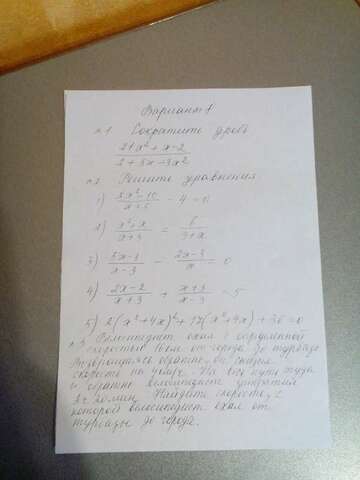 Вариант 1
№1 Сократите дробь
21x² + x - 2
2 + 5x - 3x²
№2 Решите уравнения.
1) - 4 = 0
2) x² + x / x + 3 = 6 / 3 + x
3) 5x - 1 / x - 3 - 2x - 3 / x = 0
4) 2x - 2 / x + 3 + x + 3 / x - 3 = 5
5) 2(x² + 4x)² + 17(x² + 4x) + 36 = 0
№3 Велосипедист ехал с определенной
скоростью от города до турбазы
Возвращаясь обратно, он снизил
скорость На весь путь туда
и обратно велосипедист
20 мин. Найдите скорость, с
которой велосипедист ехал от
турбазы до города.